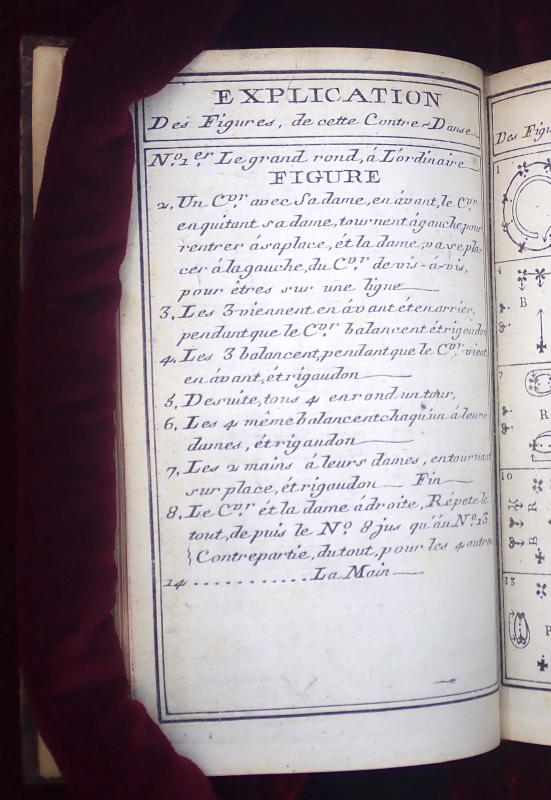 EXPLICATION
Des Figures, de cette Contre-Danse
N.º1.er Le grand rond, á L'ordinaire
FIGURE
2. Un Cvr. avec Sa dame, en ávant, le Cvr
en quitant sa dame, tournent ágauche, pour
rentrer ásaplace, ét la dame, va se pla-
cer álagauche, du Cvr. de vis-á-vis,
pour êtres sur une ligne
3. Les 3 viennent en ávant éten arrier,
pendant que le Cvr. balancent ét rigaudon
4. Les 3 balancent, pendant que le Cvr. vient
en ávant, ét rigaudon
5. Desuite, tous 4 en rond un tour,
6. Les 4 même balancent chaqu'un á leurs
dames, ét rigaudon
7. Les 2 mains á leurs dames, en tournant
sur place, ét rigaudon — Fin
8. Le Cvr. ét la dame ádroite, Répete le
tout, de puis le N.º 8 jus qu'áu N.º 13
Contrepartie, du tout, pour les 4 autres
14 ............ La Main
Des Figu
1
4
B
7
R
10
R
B
13